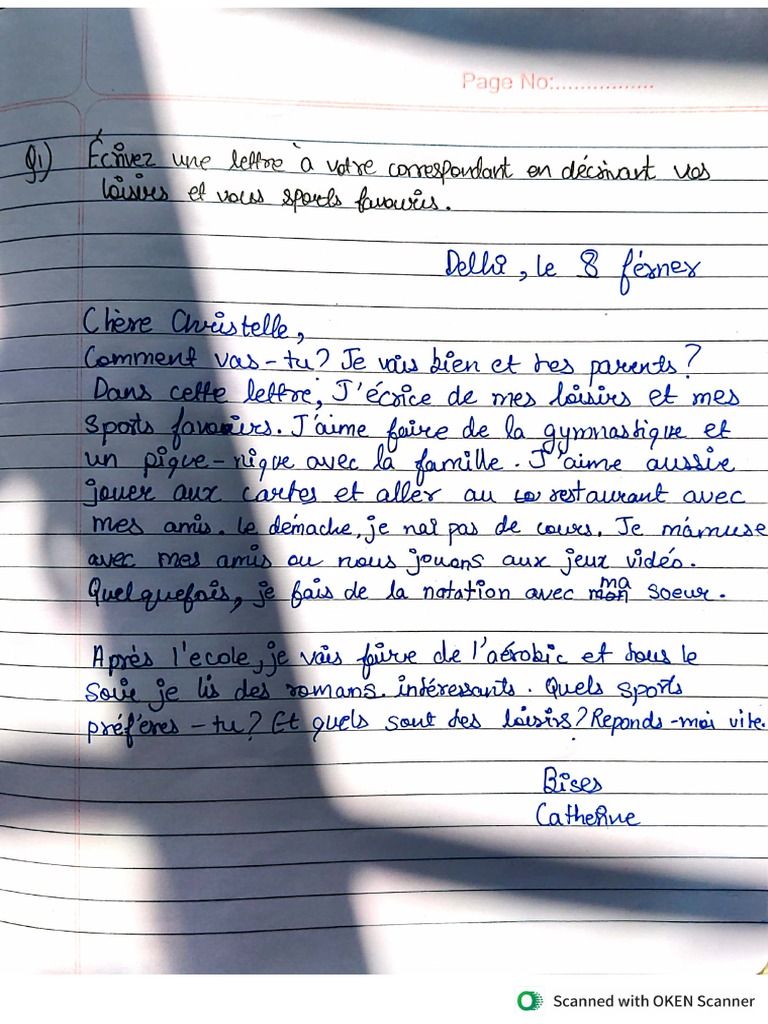 Page No:................
Q1) Écrivez une lettre à votre correspondant en décrivant vos
loisirs et vous sports favouris.
Delhi, le 8 férner
Chère Christelle,
Comment vas-tu? Je vais bien et tes parents?
Dans cette lettre, J'écrice de mes loisirs et mes
sports favoris. J'aime faire de la gymnastique et
un pique-nique avec la famille. J'aime aussie
jouer aux cartes et aller au restaurant avec
mes amis. Le démache, je nai pas de cours. Je m'amuse
avec mes amis ou nous jouons aux jeux vidéo.
Quelquefois, je fais de la notation avec ma soeur.
Après l'ecole, je vais faire de l'aérobic et tous le
soir je lis des romans. intéressants. Quels sports
préfères-tu? Et quels sont tes loisirs? Reponds-moi vite.
Bises
Catherine
Scanned with OKEN Scanner